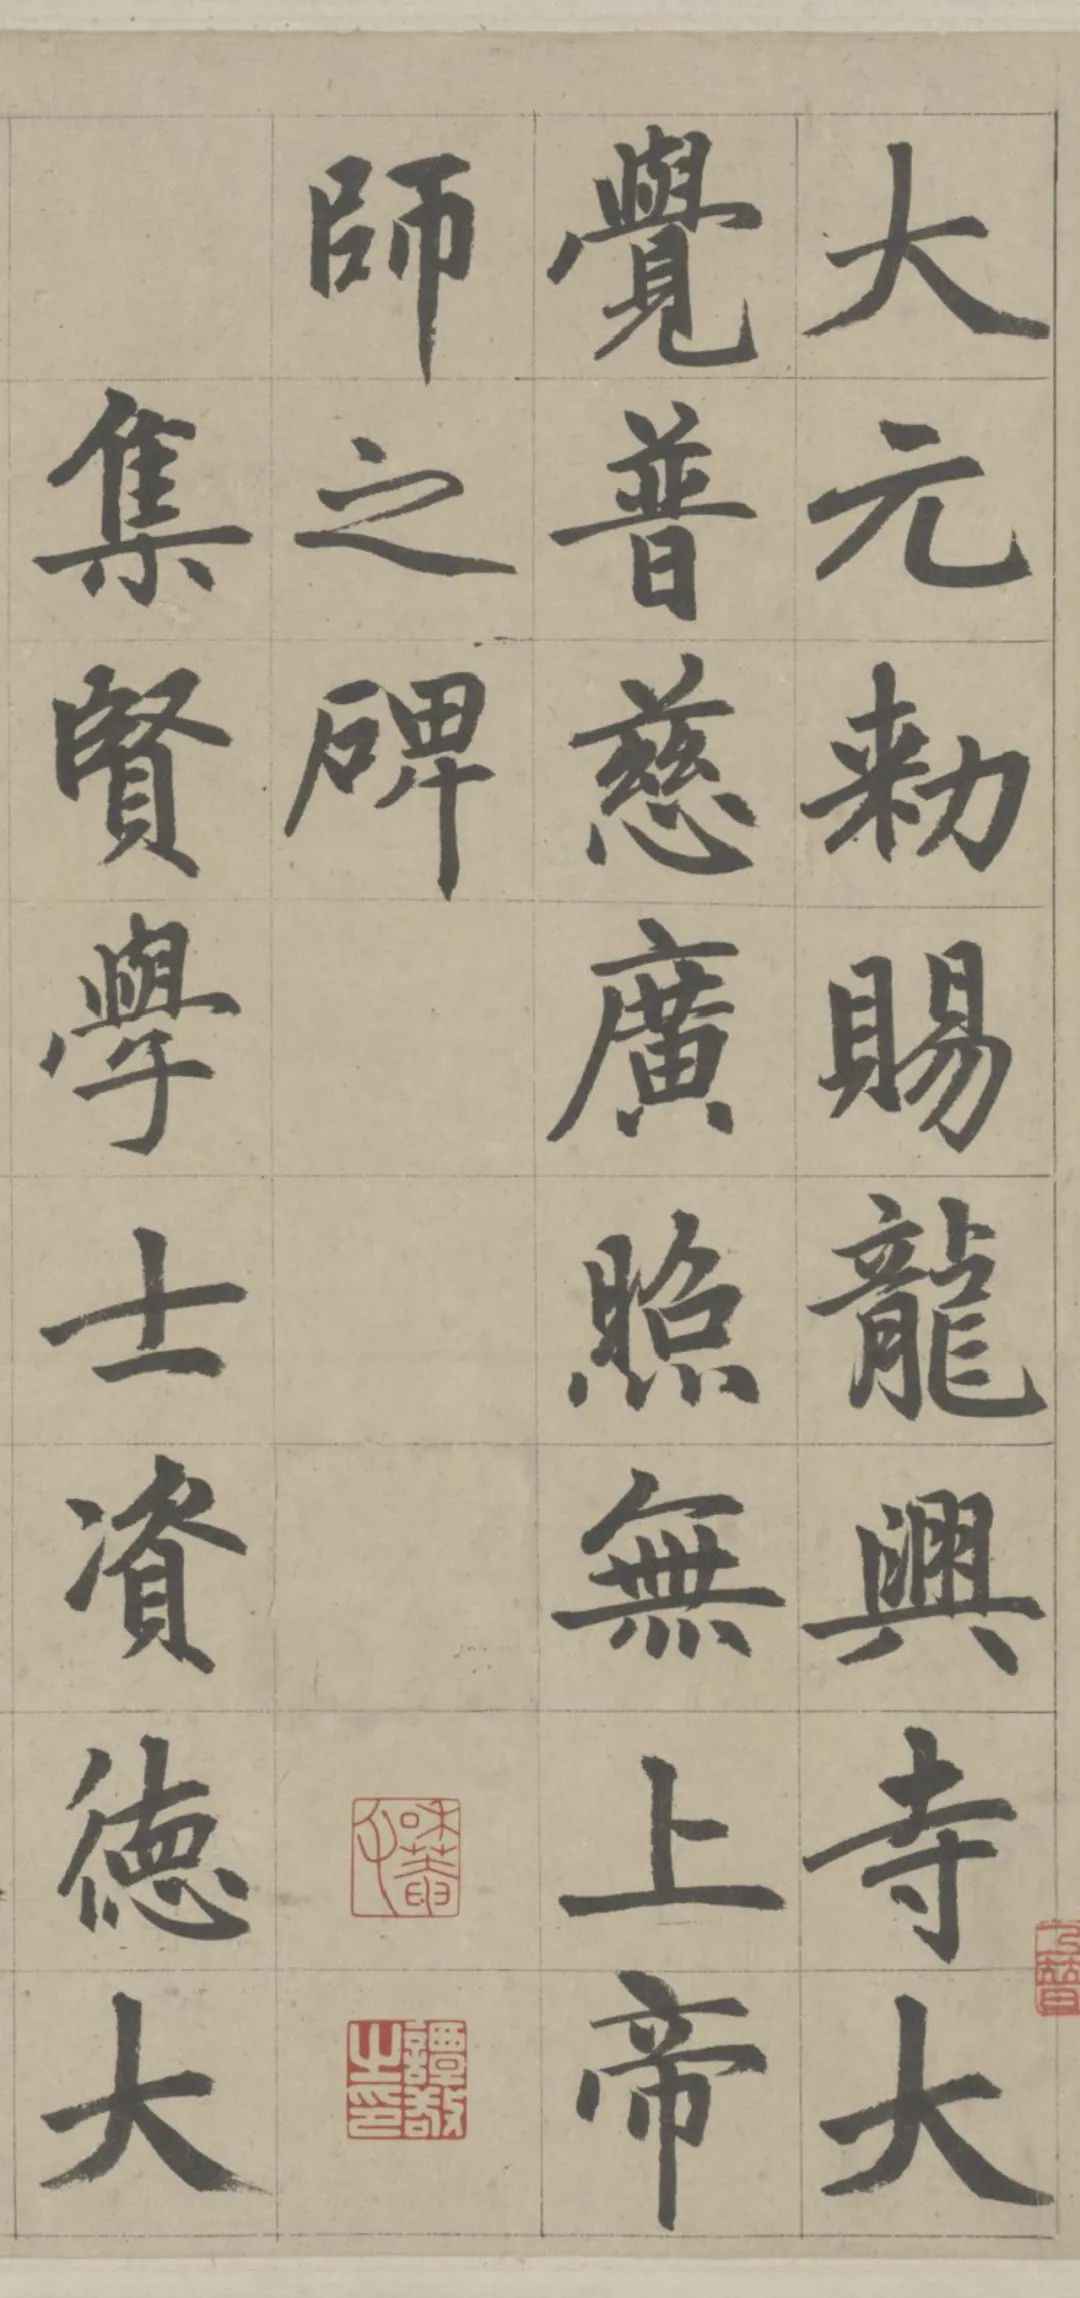 大元勑賜龍興寺大
覺普慈廣照無上帝
師之碑
集賢學士資德大
譚敬之印